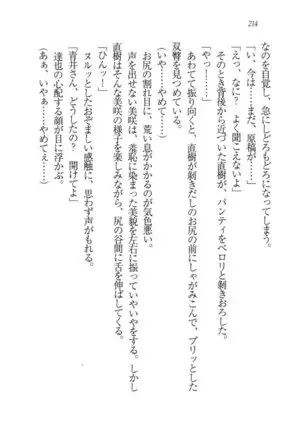 214
なのを自覚し、急にしどろもどろになってしまう。
「い、今は……まだ、原稿が……」
「えっ、なに？　よく聞こえないよ」
そのとき背後から近づいた直樹が、パンティをペロリと剝きおろした。
「やっ……」
あわてて振り向くと、直樹が剝きだしのお尻の前にしゃがみこんで、プリッとした
双臀を見つめている。
（いや……やめて……）
お尻の割れ目に、荒い息がかかるのが気色悪い。
声を出せない美咲は、羞恥に染まった美貌を左右に振っていやいやをする。しかし
直樹はそんな美咲の様子を楽しみながら、尻の谷間に舌を伸ばしてくる。
「ひんっ！」
ヌルッとしたおぞましい感触に、思わず声がもれる。
「青井さん、どうしたの？　開けてよ」
達也の心配する顔が目に浮かぶ。
（あっ、いやぁ……やめてぇっ……）